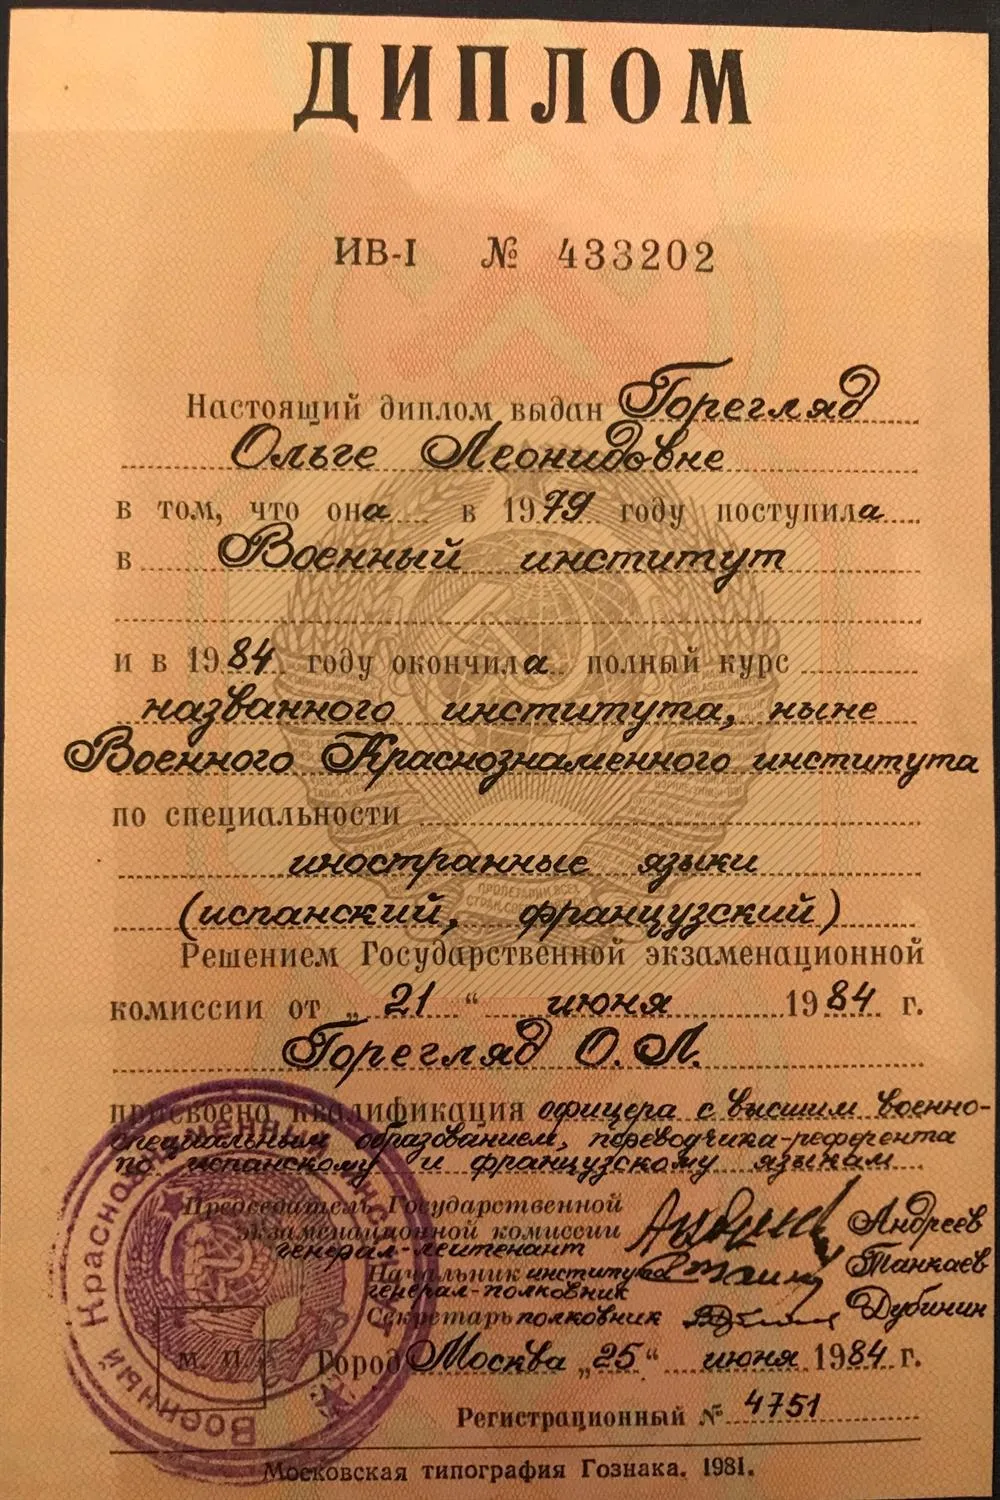 ДИПЛОМ
ИВ-I № 433202
Настоящий диплом выдан Горегляд
Ольге Леонидовне
в том, что она в 1979 году поступила
в Военный институт
и в 1984 году окончила полный курс
названного института, ныне
Военного Краснознаменного института
по специальности
иностранные языки
(испанский, французский)
Решением Государственной экзаменационной
комиссии от „21“ июня 1984 г.
Горегляд О. Л.
присвоена квалификация офицера с высшим военно-
специальным образованием, переводчика-референта
по испанскому и французскому языкам
Председатель Государственной
экзаменационной комиссии
генерал-лейтенант Андреев
Начальник института
генерал-полковник Танкаев
Секретарь полковник Дубинин
М. П. Город Москва „25“ июня 1984 г.
Регистрационный № 4751
Московская типография Гознака. 1981.
Военный Краснознаменный
ПРОЛЕТАРИИ ВСЕХ
СТРАН, СОЕ